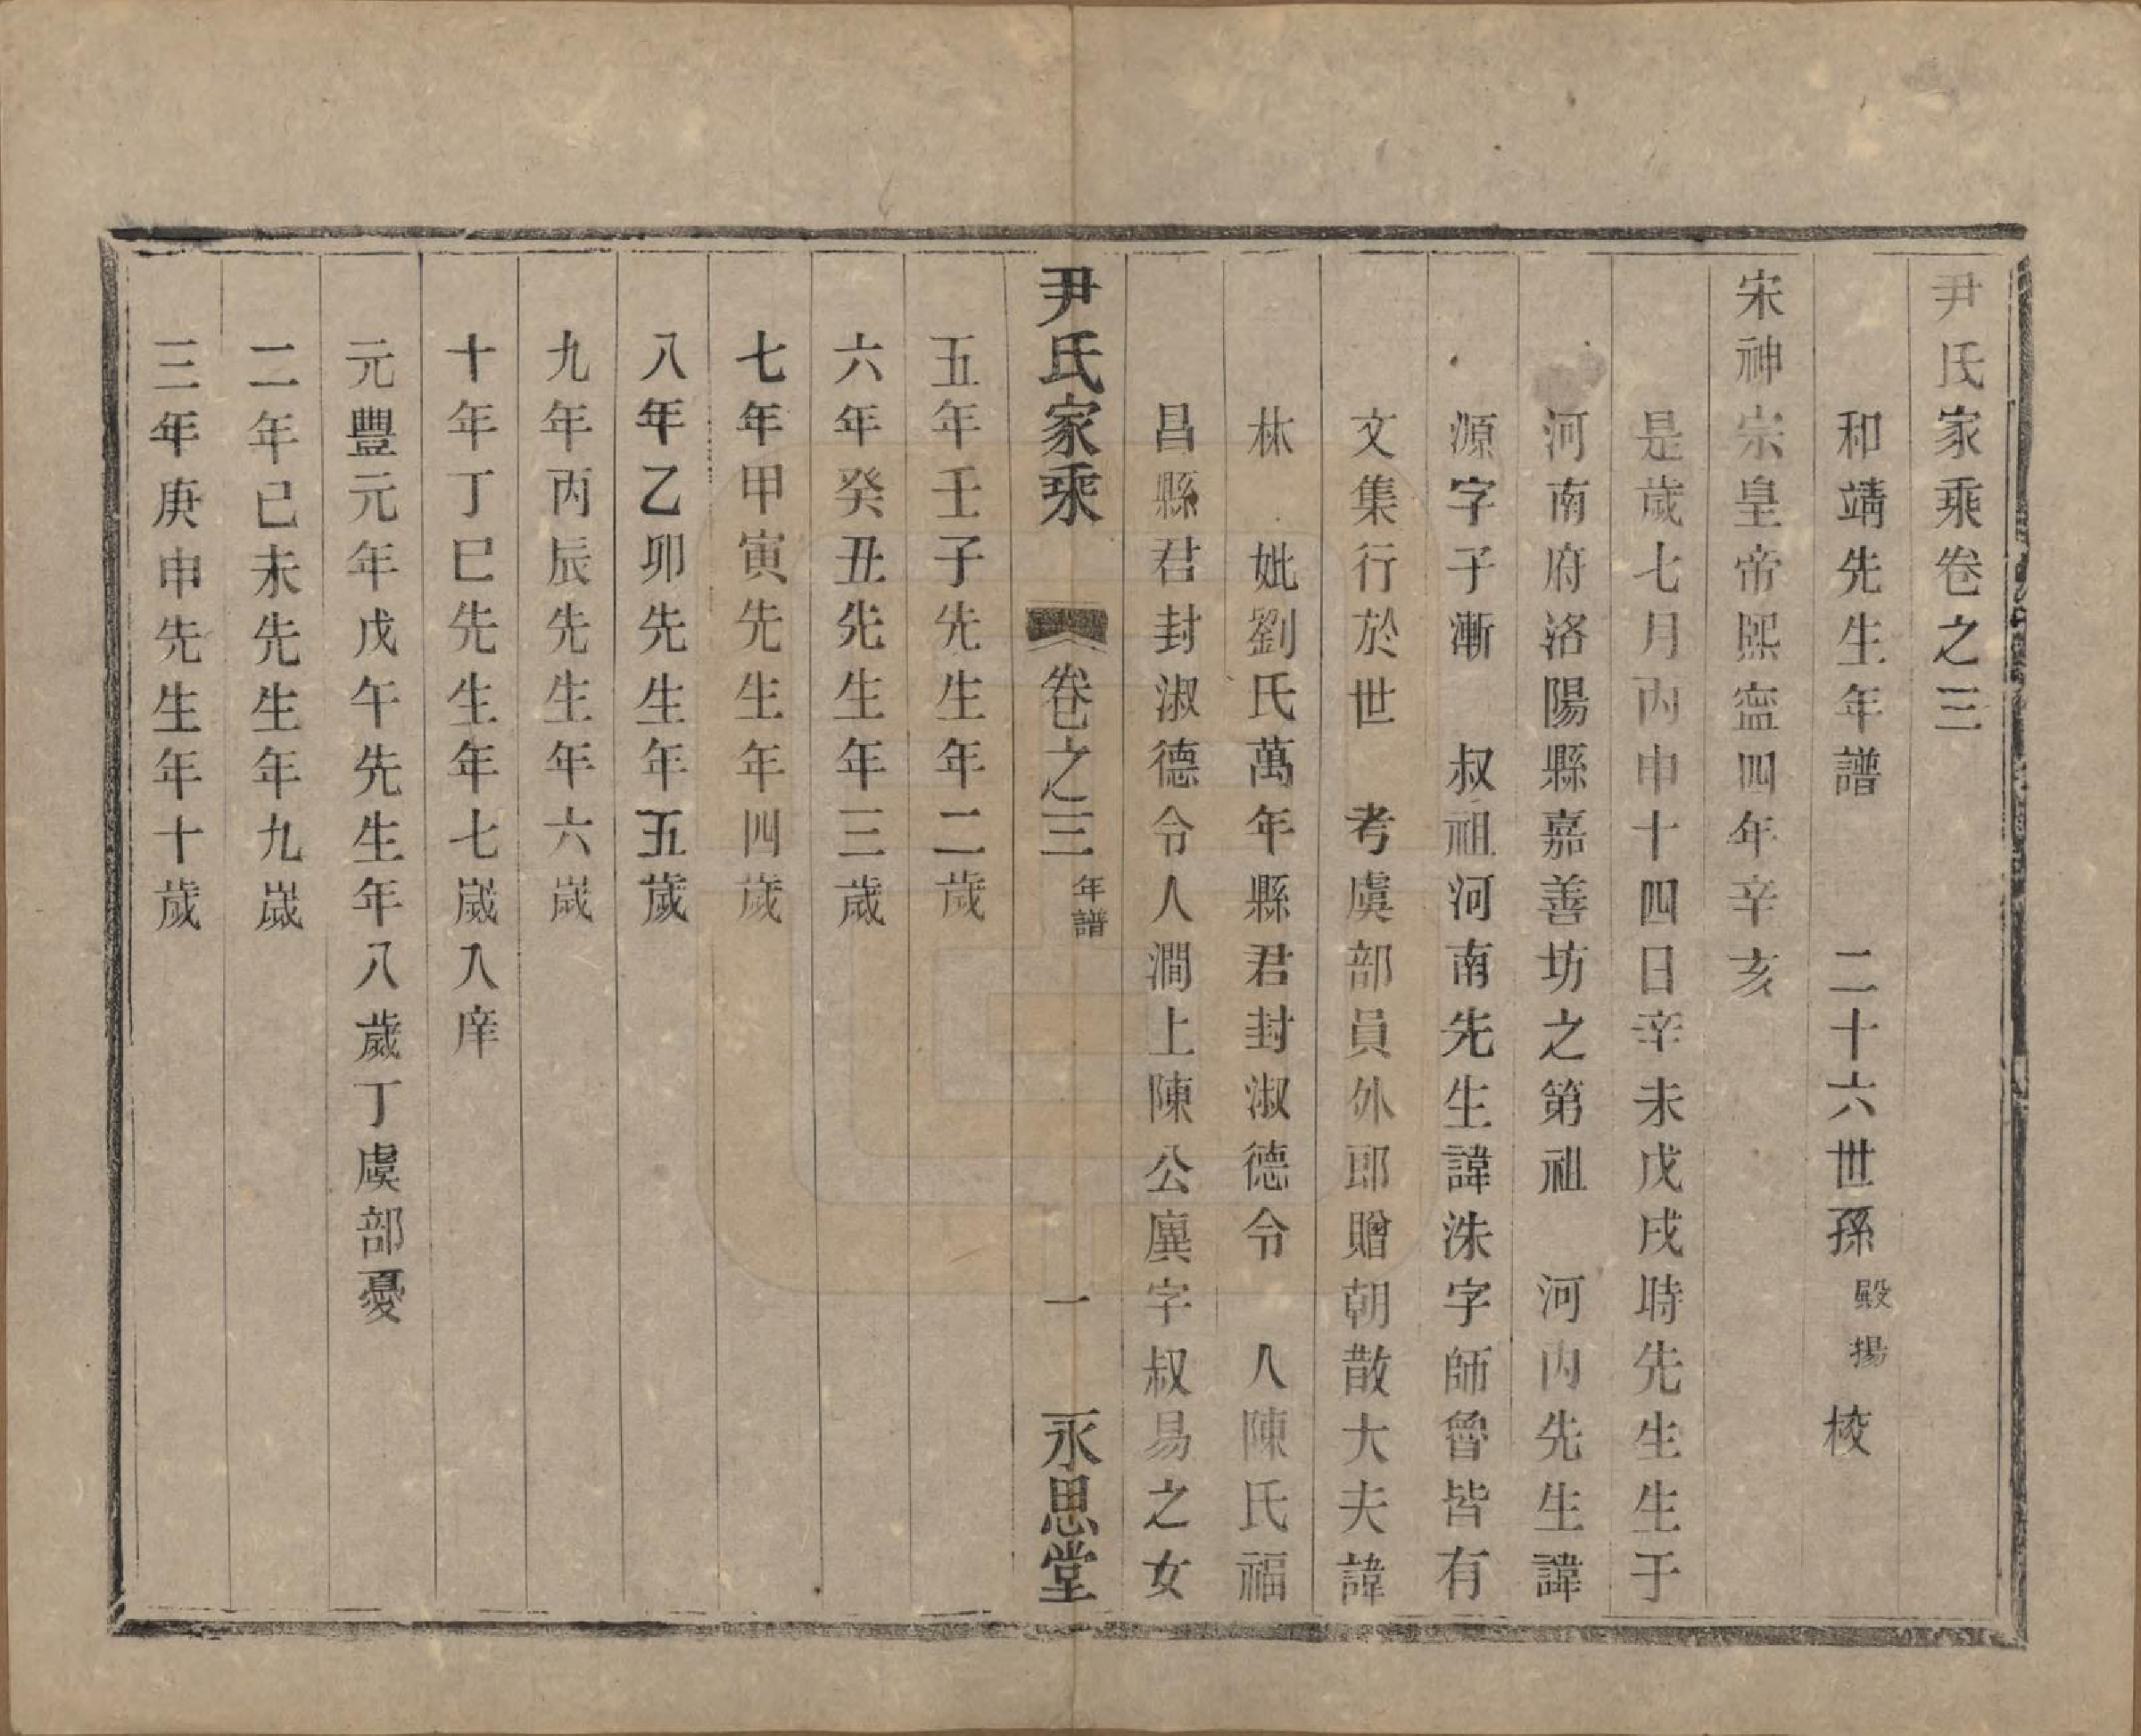 尹氏家乘卷之三
和靖先生年譜　二十六世孫殿揚校
宋神宗皇帝熙寧四年辛亥
是歲七月丙申十四日辛未戊戌時先生生于
河南府洛陽縣嘉善坊之第祖　河內先生諱
源字子漸　叔祖河南先生諱洙字師魯皆有
文集行於世　考虞部員外郎贈朝散大夫諱
林　妣劉氏萬年縣君封淑德令　人陳氏福
昌縣君封淑德令人澗上陳公廙字叔易之女
尹氏家乘　卷之三　年譜　一　永思堂
五年壬子先生年二歲
六年癸丑先生年三歲
七年甲寅先生年四歲
八年乙卯先生年五歲
九年丙辰先生年六歲
十年丁巳先生年七歲入庠
元豐元年戊午先生年八歲丁虞部憂
二年己未先生年九歲
三年庚申先生年十歲